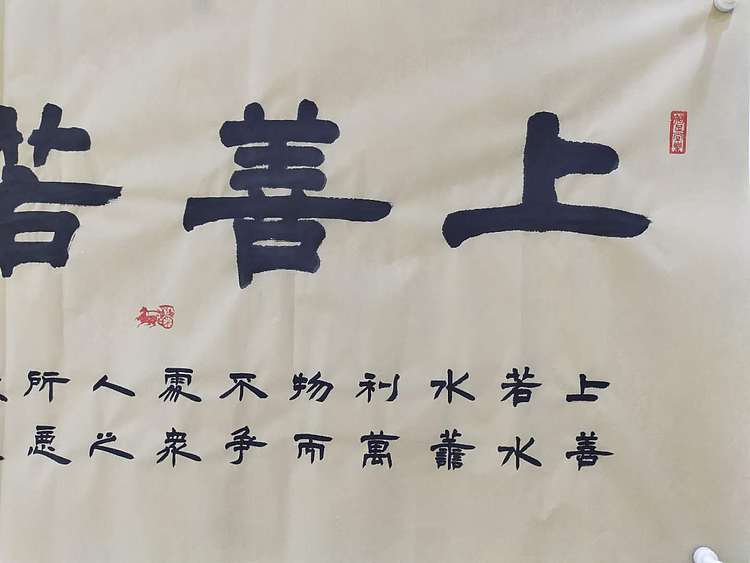 上善若
上善
若水
水譱
利萬
物而
不争
處衆
人之
所惡